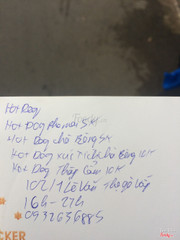 Hot Dog
Hot Dog phô mai 5K
Hot Dog chà bông 5K
Hot Dog xúc xích chà bông 10K
Hot Dog Thập Cẩm 10K
102/1 Lê Văn Thọ gò vấp
16h - 22h
0932636885
CKER